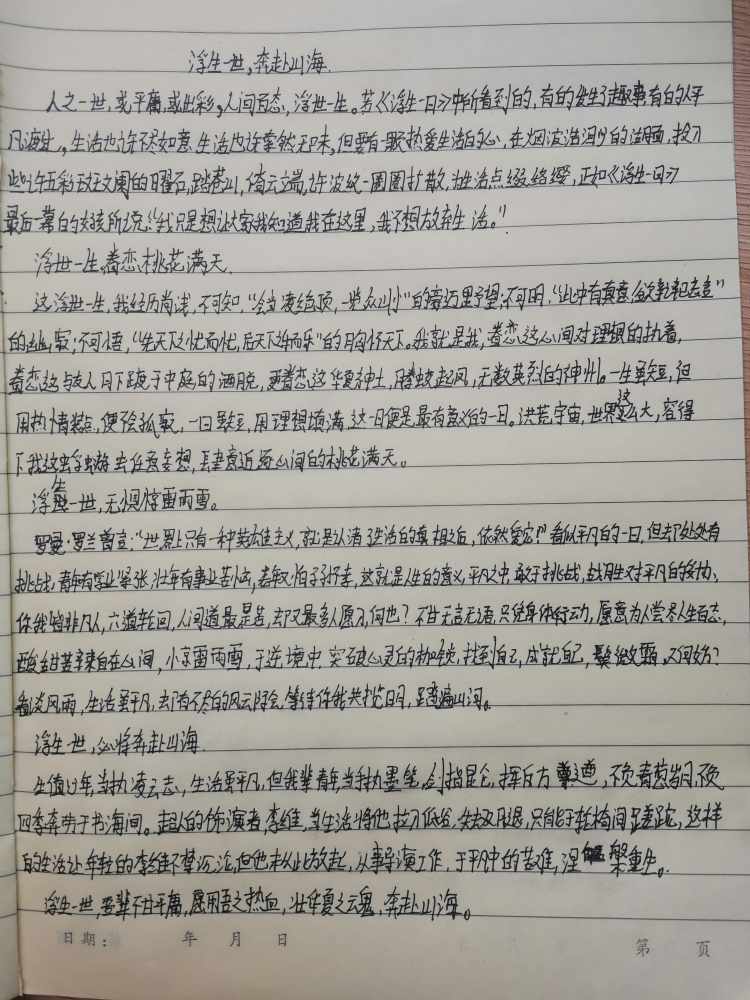 浮生一世,奔赴山海.
人之一世,或平庸,或出彩,人间百态,浮世一生。若《浮生一日》中所看到的,有的发生了趣事有的人平
凡度过,生活也许不尽如意,生活也许索然无味,但要有一颗热爱生活的心,在烟波浩渺的湖面,投入
些许五彩斑斓的曜石,踏苍山,倚云端,许波纹一圈圈扩散,为生活点缀络缨,正如《浮生一日》
最后一幕白的女孩所说:“我只是想让大家知道我在这里,我不想放弃生活。”
浮世一生,眷恋桃花满天.
这浮世一生,我经历尚浅,不可知,“会当凌绝顶,一览众山小”的豪迈里野望;不可明,“此中有真意,欲辨已忘言”
的幽寂;不可悟,“先天下之忧而忧,后天下之乐而乐”的胸怀天下。我就是我,眷恋这人间对理想的执着,
眷恋这与友人月下踱于中庭的洒脱,更眷恋这华夏神土,腾蛟起风,无数英烈的神州。一生虽短,但
用热情装点,便除孤寂,一日虽短,用理想填满,这一日便是最有意义的一日。洪荒宇宙,世界这么大,容得
下我这蜉蝣去任意妄想,肆意追逐人间的桃花满天。
浮生一世,无惧惊雷雨雪。
罗曼·罗兰曾言:“世界上只有一种英雄主义,就是认清生活的真相之后,依然爱它!”看似平凡的一日,但却处处有
挑战,青年有学业紧张,壮年有事业苦恼,老年又怕子孙不孝,这就是人生的意义,平凡之中,敢于挑战,战胜对平凡的妥协,
你我皆非凡人,六道轮回,人间道最是苦,却又最多人愿入,何也?不甘无言无语,只凭身体行动,愿意为人尝尽人生百态,
酸甜苦辣自在心间,小京雷雨雪,于逆境中,突破心灵的枷锁,找到自己,成就自己,鬓微霜,又何妨?
看淡风雨,生活虽平凡,却有不尽的风云际会,等待你我共揽日月,踏遍山河。
浮生一世,必将奔赴山海.
生值少年,当执凌云志,生活虽平凡,但我辈青年,当手执墨笔,剑指昆仑,挥斥方遒,不负青葱岁月,不负
四季奔劳于书海间。超人的饰演者,李维,当生活将他拉入低谷,失去双腿,只能于轮椅间蹉跎,这样
的生活让年轻的李维不禁沉沦,但他未从此放弃,从事导演工作,于平凡中的苦难,涅槃重生。
浮生一世,吾辈不甘平庸,愿用吾之热血,壮华夏之魂,奔赴山海。
日期: 年 月 日 第 页